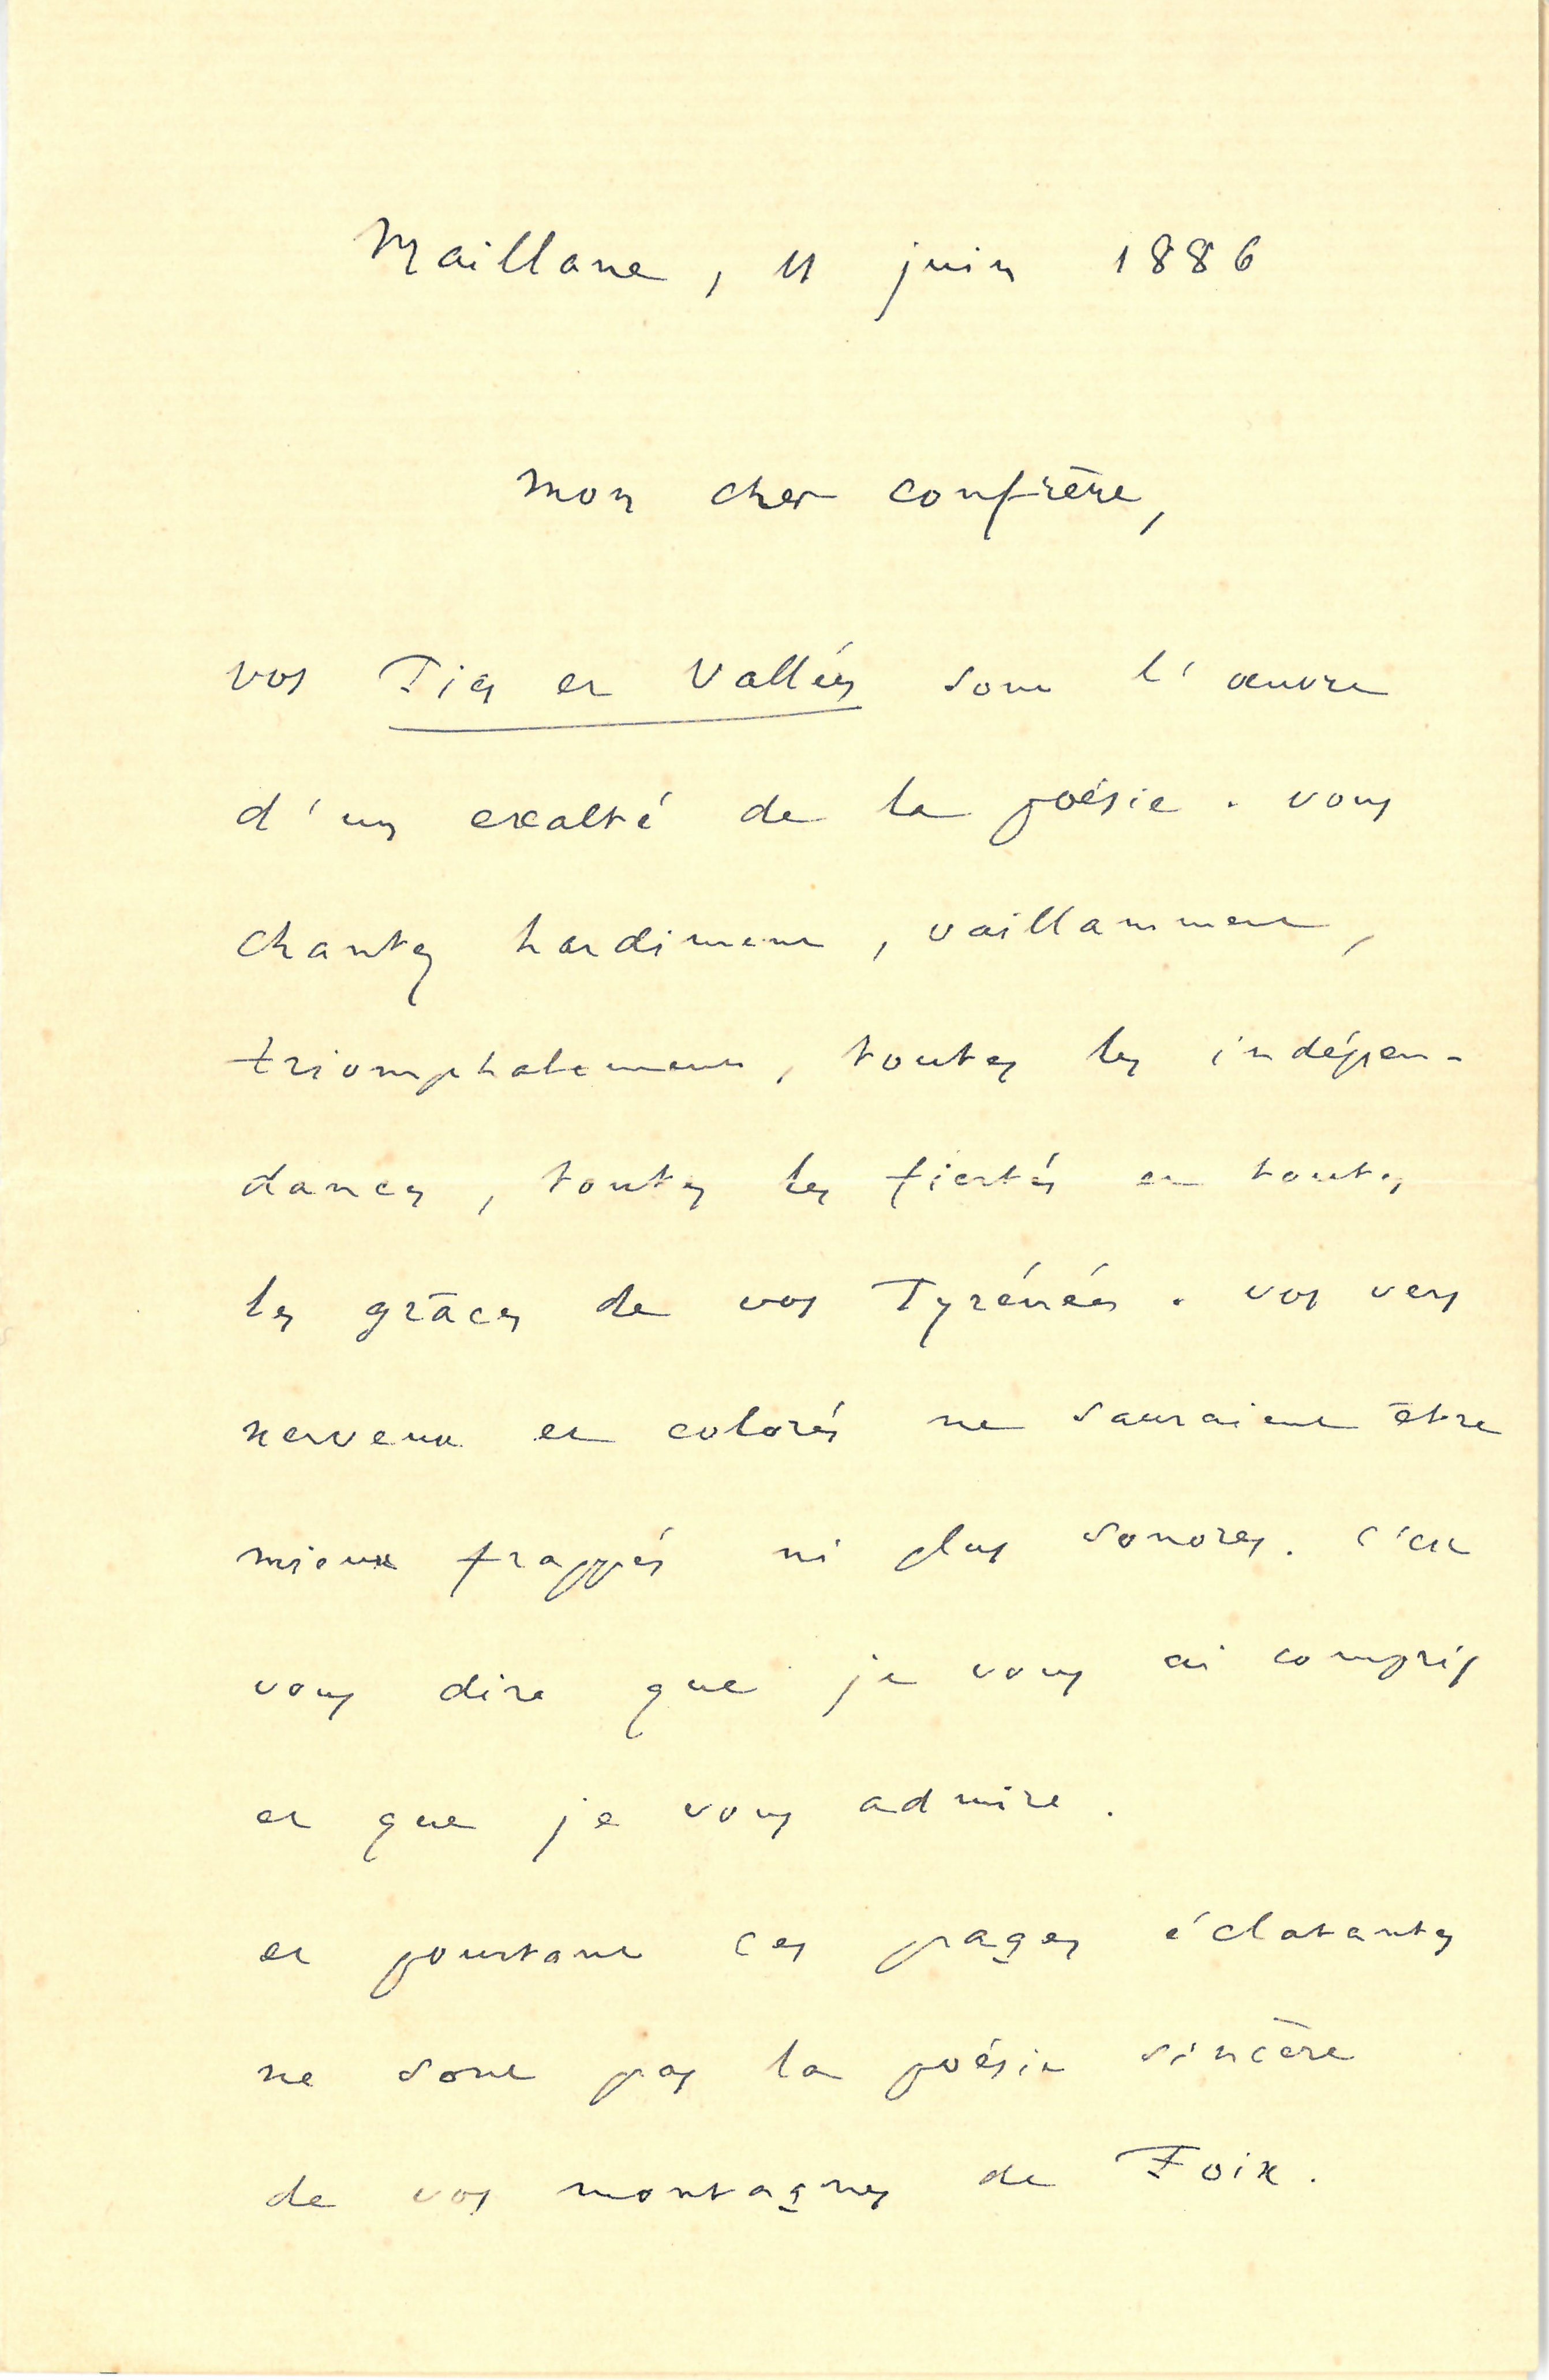 Maillane, 11 juin 1886
mon cher confrère,
vos Pics et Vallées sont l'œuvre
d'un exalté de la poésie. vous
chantez hardiment, vaillamment,
triomphalement, toutes les indépen-
dances, toutes les fiertés et toutes
les grâces de vos Pyrénées. vos vers
nerveux et colorés ne sauraient être
mieux frappés ni plus sonores. c'est
vous dire que je vous ai compris
et que je vous admire.
et pourtant ces pages éclatantes
ne sont pas la poésie sincère
de vos montagnes de Foix.